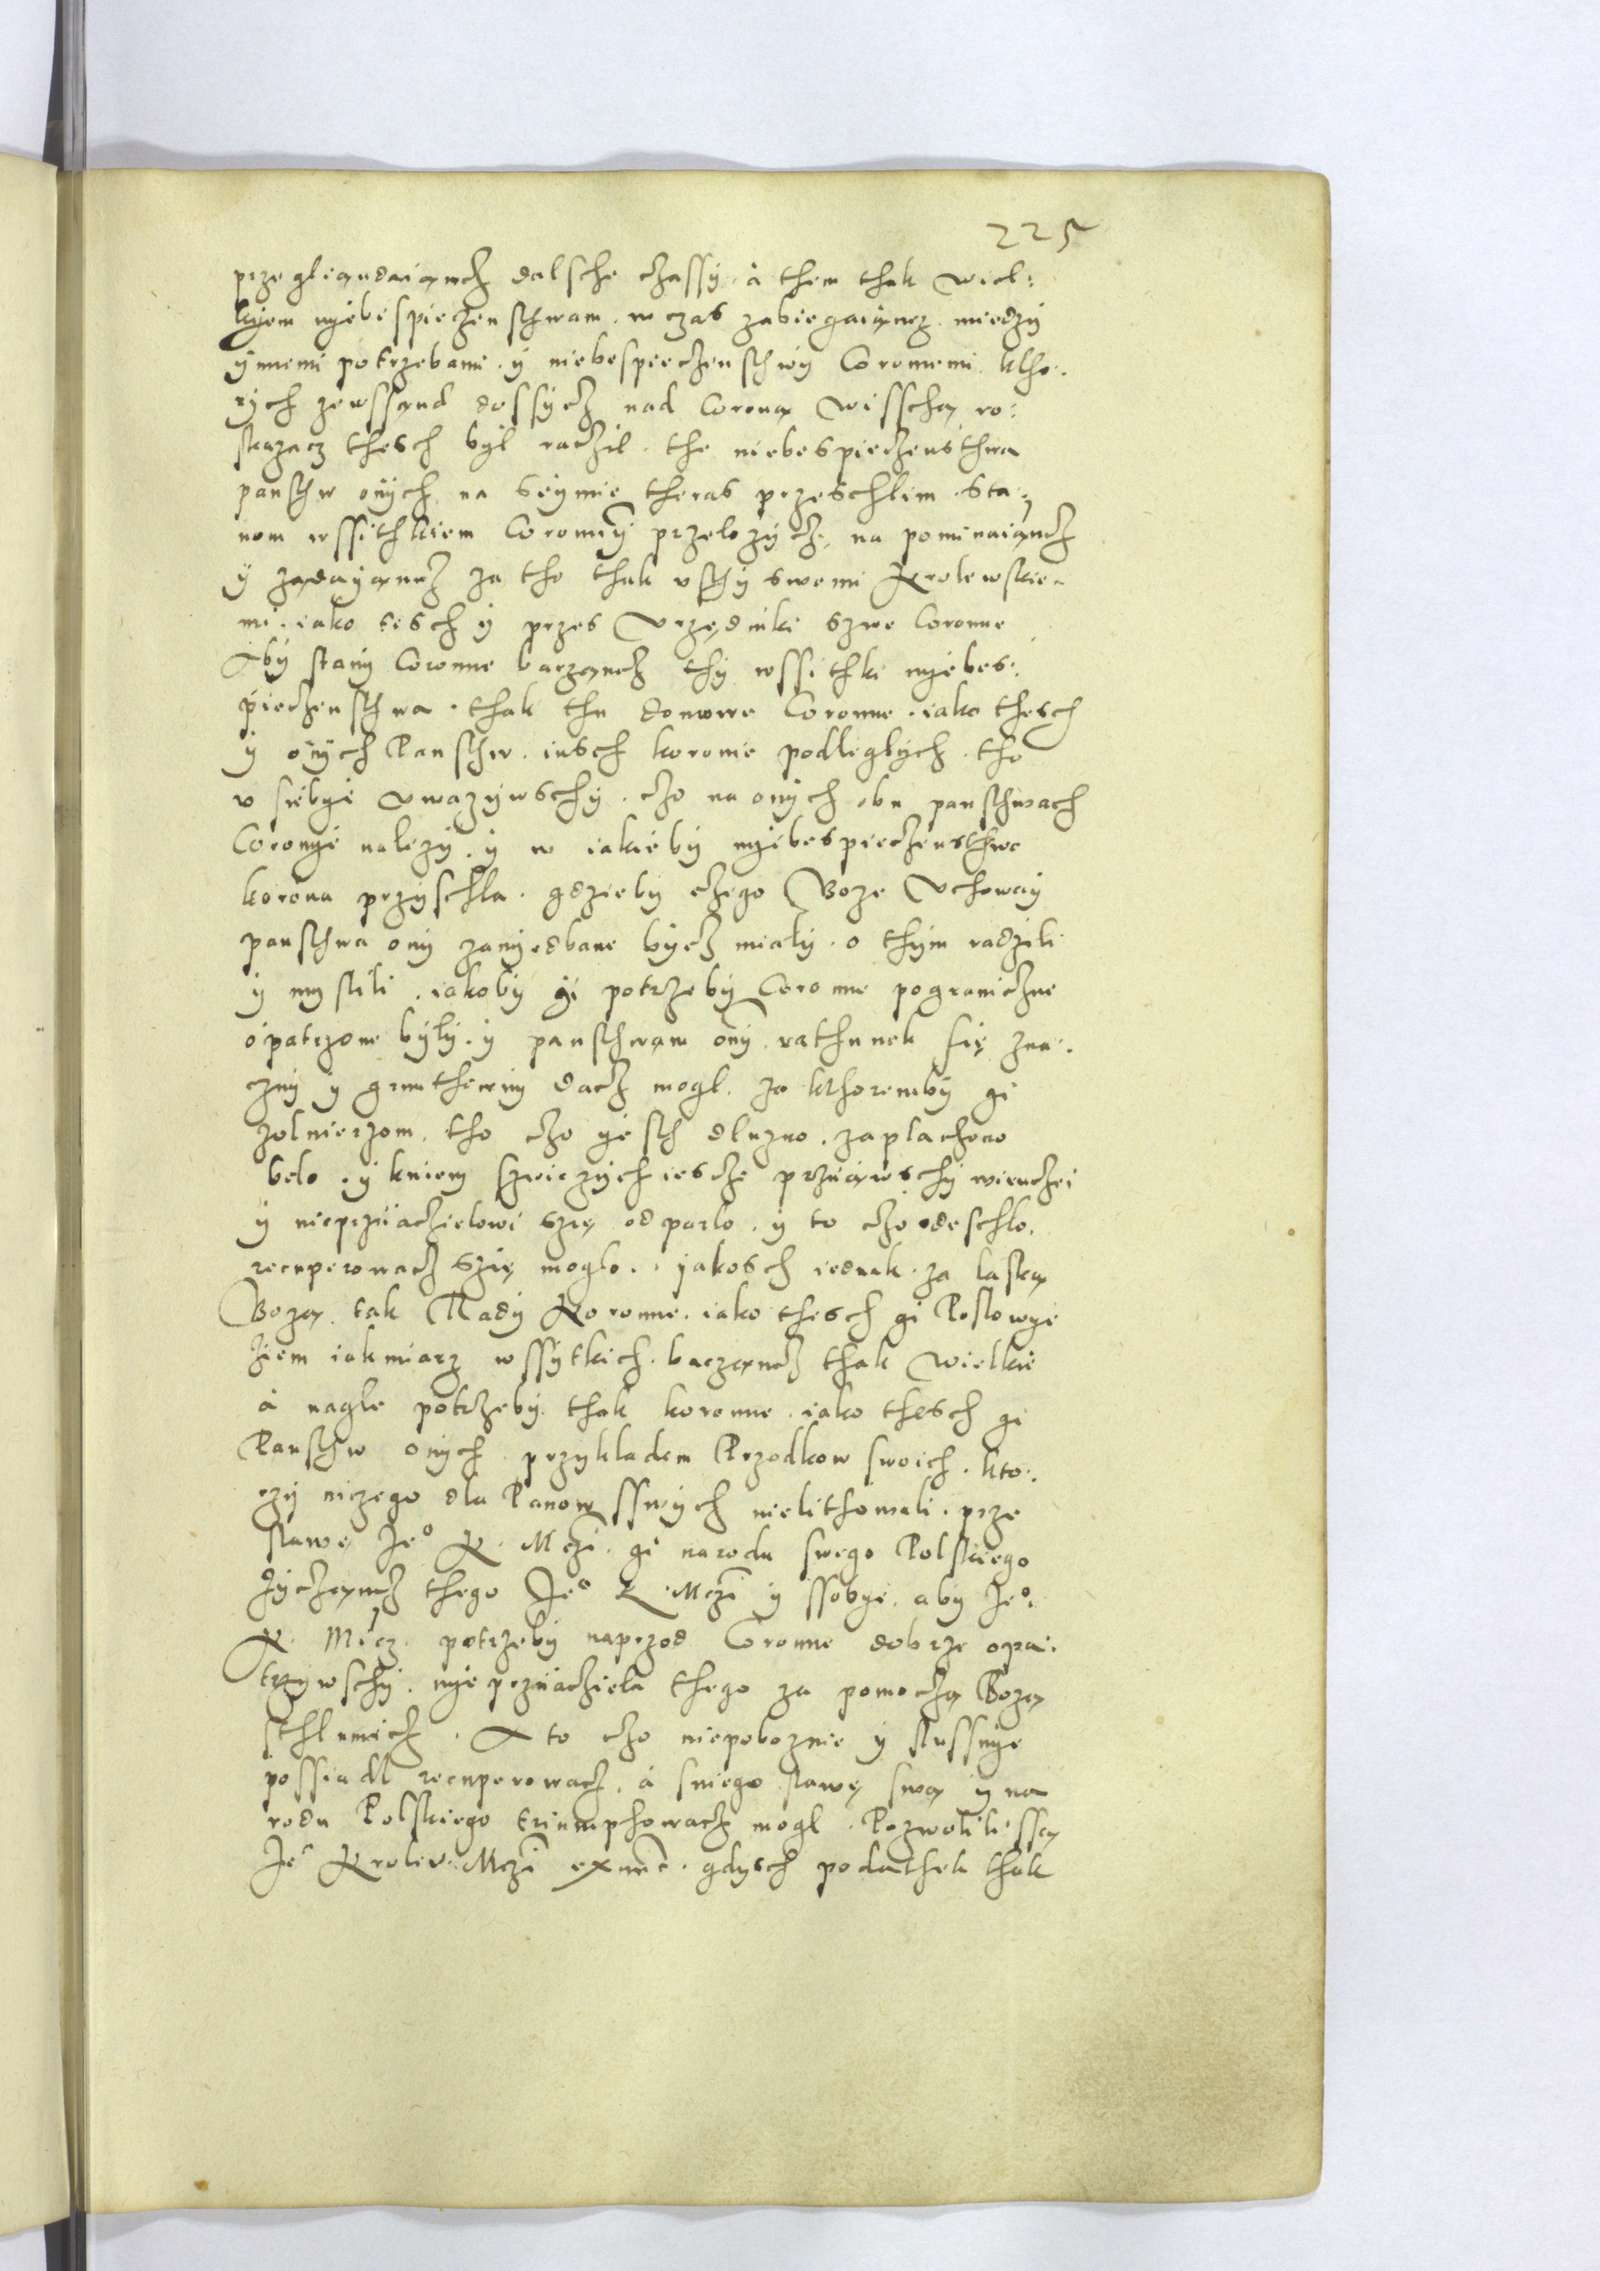 225
przegliąndaiąncz dalsche czassÿ. à them thak wiel:
kÿem nÿebespieczenschwam. w czas zabiegaiąncz. miedzÿ
ÿnnemi potrzebami. ÿ niebespieczenschwÿ Coronnemi. ktho.
rÿch zewssąnd dossÿcz nad Coroną wisscha ro:
skazacz thesch bÿl raczil. the niebespieczensthwa
panschw onÿch na Seÿmie theras przeschlim. Sta.
nom wssithkiem Coronnÿ przelozÿcz, na pominaiącz
ÿ ządaÿąncz za tho thak usthÿ swemi Krolewskie.
mi. iako tesch ÿ przes Vrzędniki szwe Coronne
Abÿ stanÿ Coronne barząncz thÿ wssithki nÿebes:
pieczenschwa. thak thu domowe Coronne. iako thesch
ÿ onÿch Panschw. iusch koronie podleglÿch. tho
u siebÿe uwazÿwschÿ. czo na onÿch obu panschwach
Coronÿe nalezÿ. ÿ w iakiebÿ nÿebespieczensthwo
korona przÿschla. gdziebÿ czego Boze Uchowaÿ
panschwa onÿ zanÿedbane bÿcz mialÿ. o thÿm radzili
ÿ mÿslili. iakobÿ ÿi potrzebÿ Coronne pograniczne
opatrzone bÿlÿ. ÿ panschwam onÿ rathunek się zna.
cznÿ ÿ grunthownÿ dacz mogl. za kthorembÿ ÿi
zolnierzom, tho czo ÿesth dluzno. zaplachono
belo. ÿ kniem szwiezÿch iescze prziiąwschÿ wienczei
ÿ nieprziiaczielowi szię odparlo. ÿ to czo odeschlo.
recuperowacz szię moglo. ÿakosch iednak. za laską
Bozą. tak Radÿ Koronne. iako thesch ÿi Poslowÿe
Ziem iakmiarz wssÿtkich. bacząncz thak wielkie
à nagle potrzebÿ. thak koronne. iako thesch ÿi
Panschw onÿch. przÿkladem Przodkow swoich. kto.
rzÿ niczego dla Panow sswÿch nielithowali. prze
slawę Je° K. Mczi. ÿi narodu swego Polskiego
Zÿcząncz thego Je° K. Mczi ÿ ssobÿe. abÿ Je°.
K. M'cz. potrzebÿ naprzod Coronne dobrze opa.
trzÿwschÿ. nÿeprziiacziela thego za pomoczą Bozą
sthlumicz. A to czo niepoboznie ÿ slussnÿe
possiadl recuperowacz. à sniego slawę swą ÿ na
rodu Polskiego triumphowacz mogl. Pozwolili ssą
Je° Krolew. Mczi. gdÿsch podathek thak